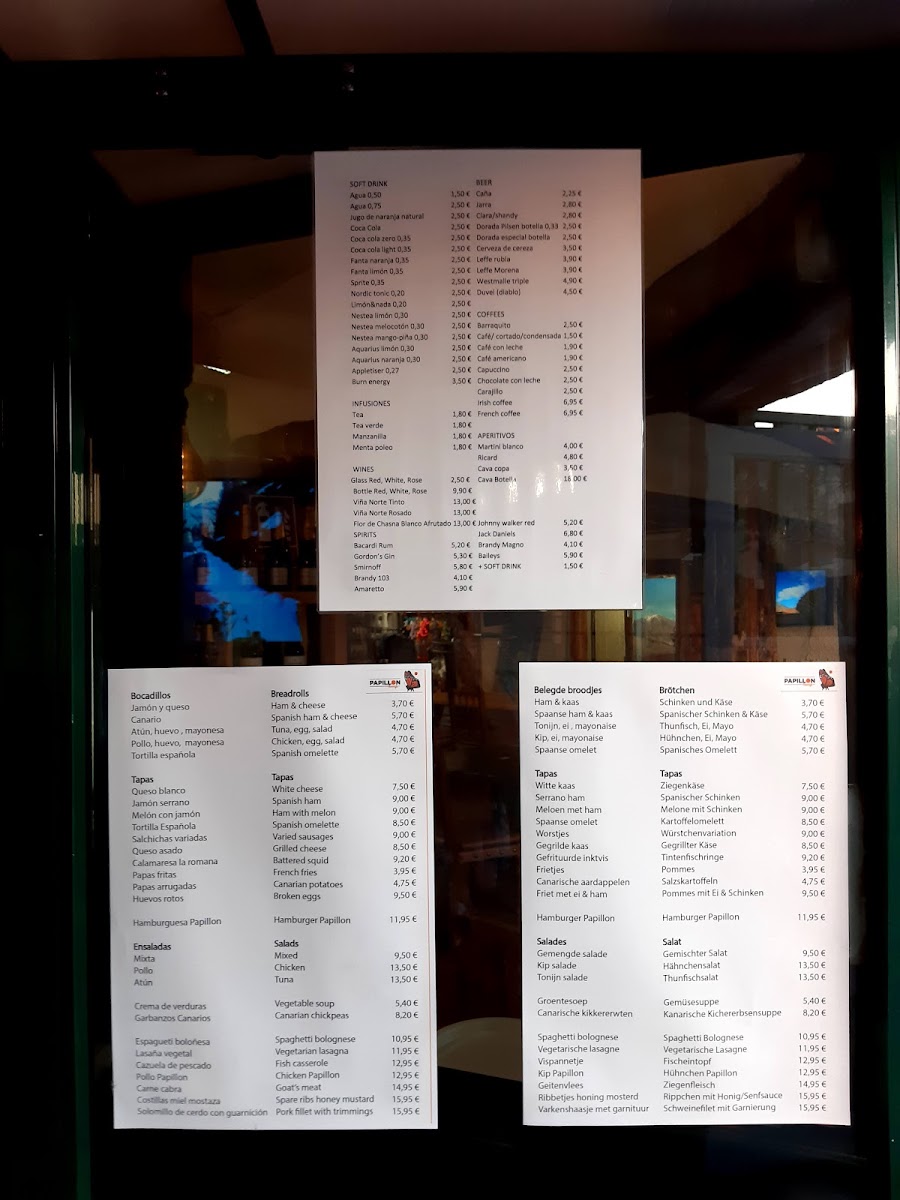 SOFT DRINK
Agua 0,50 1,50 €
Agua 0,75 2,50 €
Jugo de naranja natural 2,50 €
Coca Cola 2,50 €
Coca cola zero 0,35 2,50 €
Coca cola light 0,35 2,50 €
Fanta naranja 0,35 2,50 €
Fanta limón 0,35 2,50 €
Sprite 0,35 2,50 €
Nordic tonic 0,20 2,50 €
Limón&nada 0,20 2,50 €
Nestea limón 0,30 2,50 €
Nestea melocotón 0,30 2,50 €
Nestea mango-piña 0,30 2,50 €
Aquarius limón 0,30 2,50 €
Aquarius naranja 0,30 2,50 €
Appletiser 0,27 2,50 €
Burn energy 3,50 €
INFUSIONES
Tea 1,80 €
Tea verde 1,80 €
Manzanilla 1,80 €
Menta poleo 1,80 €
WINES
Glass Red, White, Rose 2,50 €
Bottle Red, White, Rose 9,90 €
Viña Norte Tinto 13,00 €
Viña Norte Rosado 13,00 €
Flor de Chasna Blanco Afrutado 13,00 €
SPIRITS
Bacardi Rum 5,20 €
Gordon's Gin 5,30 €
Smirnoff 5,80 €
Brandy 103 4,10 €
Amaretto 5,90 €
BEER
Caña 2,25 €
Jarra 2,80 €
Clara/shandy 2,80 €
Dorada Pilsen botella 0,33 2,50 €
Dorada especial botella 2,50 €
Cerveza de cereza 3,50 €
Leffe rubia 3,90 €
Leffe Morena 3,90 €
Westmalle triple 4,90 €
Duvel (diablo) 4,50 €
COFFEES
Barraquito 2,50 €
Café/ cortado/condensada 1,50 €
Café con leche 1,90 €
Café americano 1,90 €
Capuccino 2,50 €
Chocolate con leche 2,50 €
Carajillo 2,50 €
Irish coffee 6,95 €
French coffee 6,95 €
APERITIVOS
Martini blanco 4,00 €
Ricard 4,80 €
Cava copa 3,50 €
Cava Botella 18,00 €
Johnny walker red 5,20 €
Jack Daniels 6,80 €
Brandy Magno 4,10 €
Baileys 5,90 €
+ SOFT DRINK 1,50 €
PAPILLON
Bocadillos Breadrolls
Jamón y queso Ham & cheese 3,70 €
Canario Spanish ham & cheese 5,70 €
Atún, huevo , mayonesa Tuna, egg, salad 4,70 €
Pollo, huevo, mayonesa Chicken, egg, salad 4,70 €
Tortilla española Spanish omelette 5,70 €
Tapas Tapas
Queso blanco White cheese 7,50 €
Jamón serrano Spanish ham 9,00 €
Melón con jamón Ham with melon 9,00 €
Tortilla Española Spanish omelette 8,50 €
Salchichas variadas Varied sausages 9,00 €
Queso asado Grilled cheese 8,50 €
Calamaresa la romana Battered squid 9,20 €
Papas fritas French fries 3,95 €
Papas arrugadas Canarian potatoes 4,75 €
Huevos rotos Broken eggs 9,50 €
Hamburguesa Papillon Hamburger Papillon 11,95 €
Ensaladas Salads
Mixta Mixed 9,50 €
Pollo Chicken 13,50 €
Atún Tuna 13,50 €
Crema de verduras Vegetable soup 5,40 €
Garbanzos Canarios Canarian chickpeas 8,20 €
Espagueti boloñesa Spaghetti bolognese 10,95 €
Lasaña vegetal Vegetarian lasagna 11,95 €
Cazuela de pescado Fish casserole 12,95 €
Pollo Papillon Chicken Papillon 12,95 €
Carne cabra Goat's meat 14,95 €
Costillas miel mostaza Spare ribs honey mustard 15,95 €
Solomillo de cerdo con guarnición Pork fillet with trimmings 15,95 €
PAPILLON
Belegde broodjes Brötchen
Ham & kaas Schinken und Käse 3,70 €
Spaanse ham & kaas Spanischer Schinken & Käse 5,70 €
Tonijn, ei , mayonaise Thunfisch, Ei, Mayo 4,70 €
Kip, ei, mayonaise Hühnchen, Ei, Mayo 4,70 €
Spaanse omelet Spanisches Omelett 5,70 €
Tapas Tapas
Witte kaas Ziegenkäse 7,50 €
Serrano ham Spanischer Schinken 9,00 €
Meloen met ham Melone mit Schinken 9,00 €
Spaanse omelet Kartoffelomelett 8,50 €
Worstjes Würstchenvariation 9,00 €
Gegrilde kaas Gegrillter Käse 8,50 €
Gefrituurde inktvis Tintenfischringe 9,20 €
Frietjes Pommes 3,95 €
Canarische aardappelen Salzskartoffeln 4,75 €
Friet met ei & ham Pommes mit Ei & Schinken 9,50 €
Hamburger Papillon Hamburger Papillon 11,95 €
Salades Salat
Gemengde salade Gemischter Salat 9,50 €
Kip salade Hähnchensalat 13,50 €
Tonijn salade Thunfischsalat 13,50 €
Groentesoep Gemüsesuppe 5,40 €
Canarische kikkererwten Kanarische Kichererbsensuppe 8,20 €
Spaghetti bolognese Spaghetti Bolognese 10,95 €
Vegetarische lasagne Vegetarische Lasagne 11,95 €
Vispannetje Fischeintopf 12,95 €
Kip Papillon Hühnchen Papillon 12,95 €
Geitenvlees Ziegenfleisch 14,95 €
Ribbetjes honing mosterd Rippchen mit Honig/Senfsauce 15,95 €
Varkenshaasje met garnituur Schweinefilet mit Garnierung 15,95 €